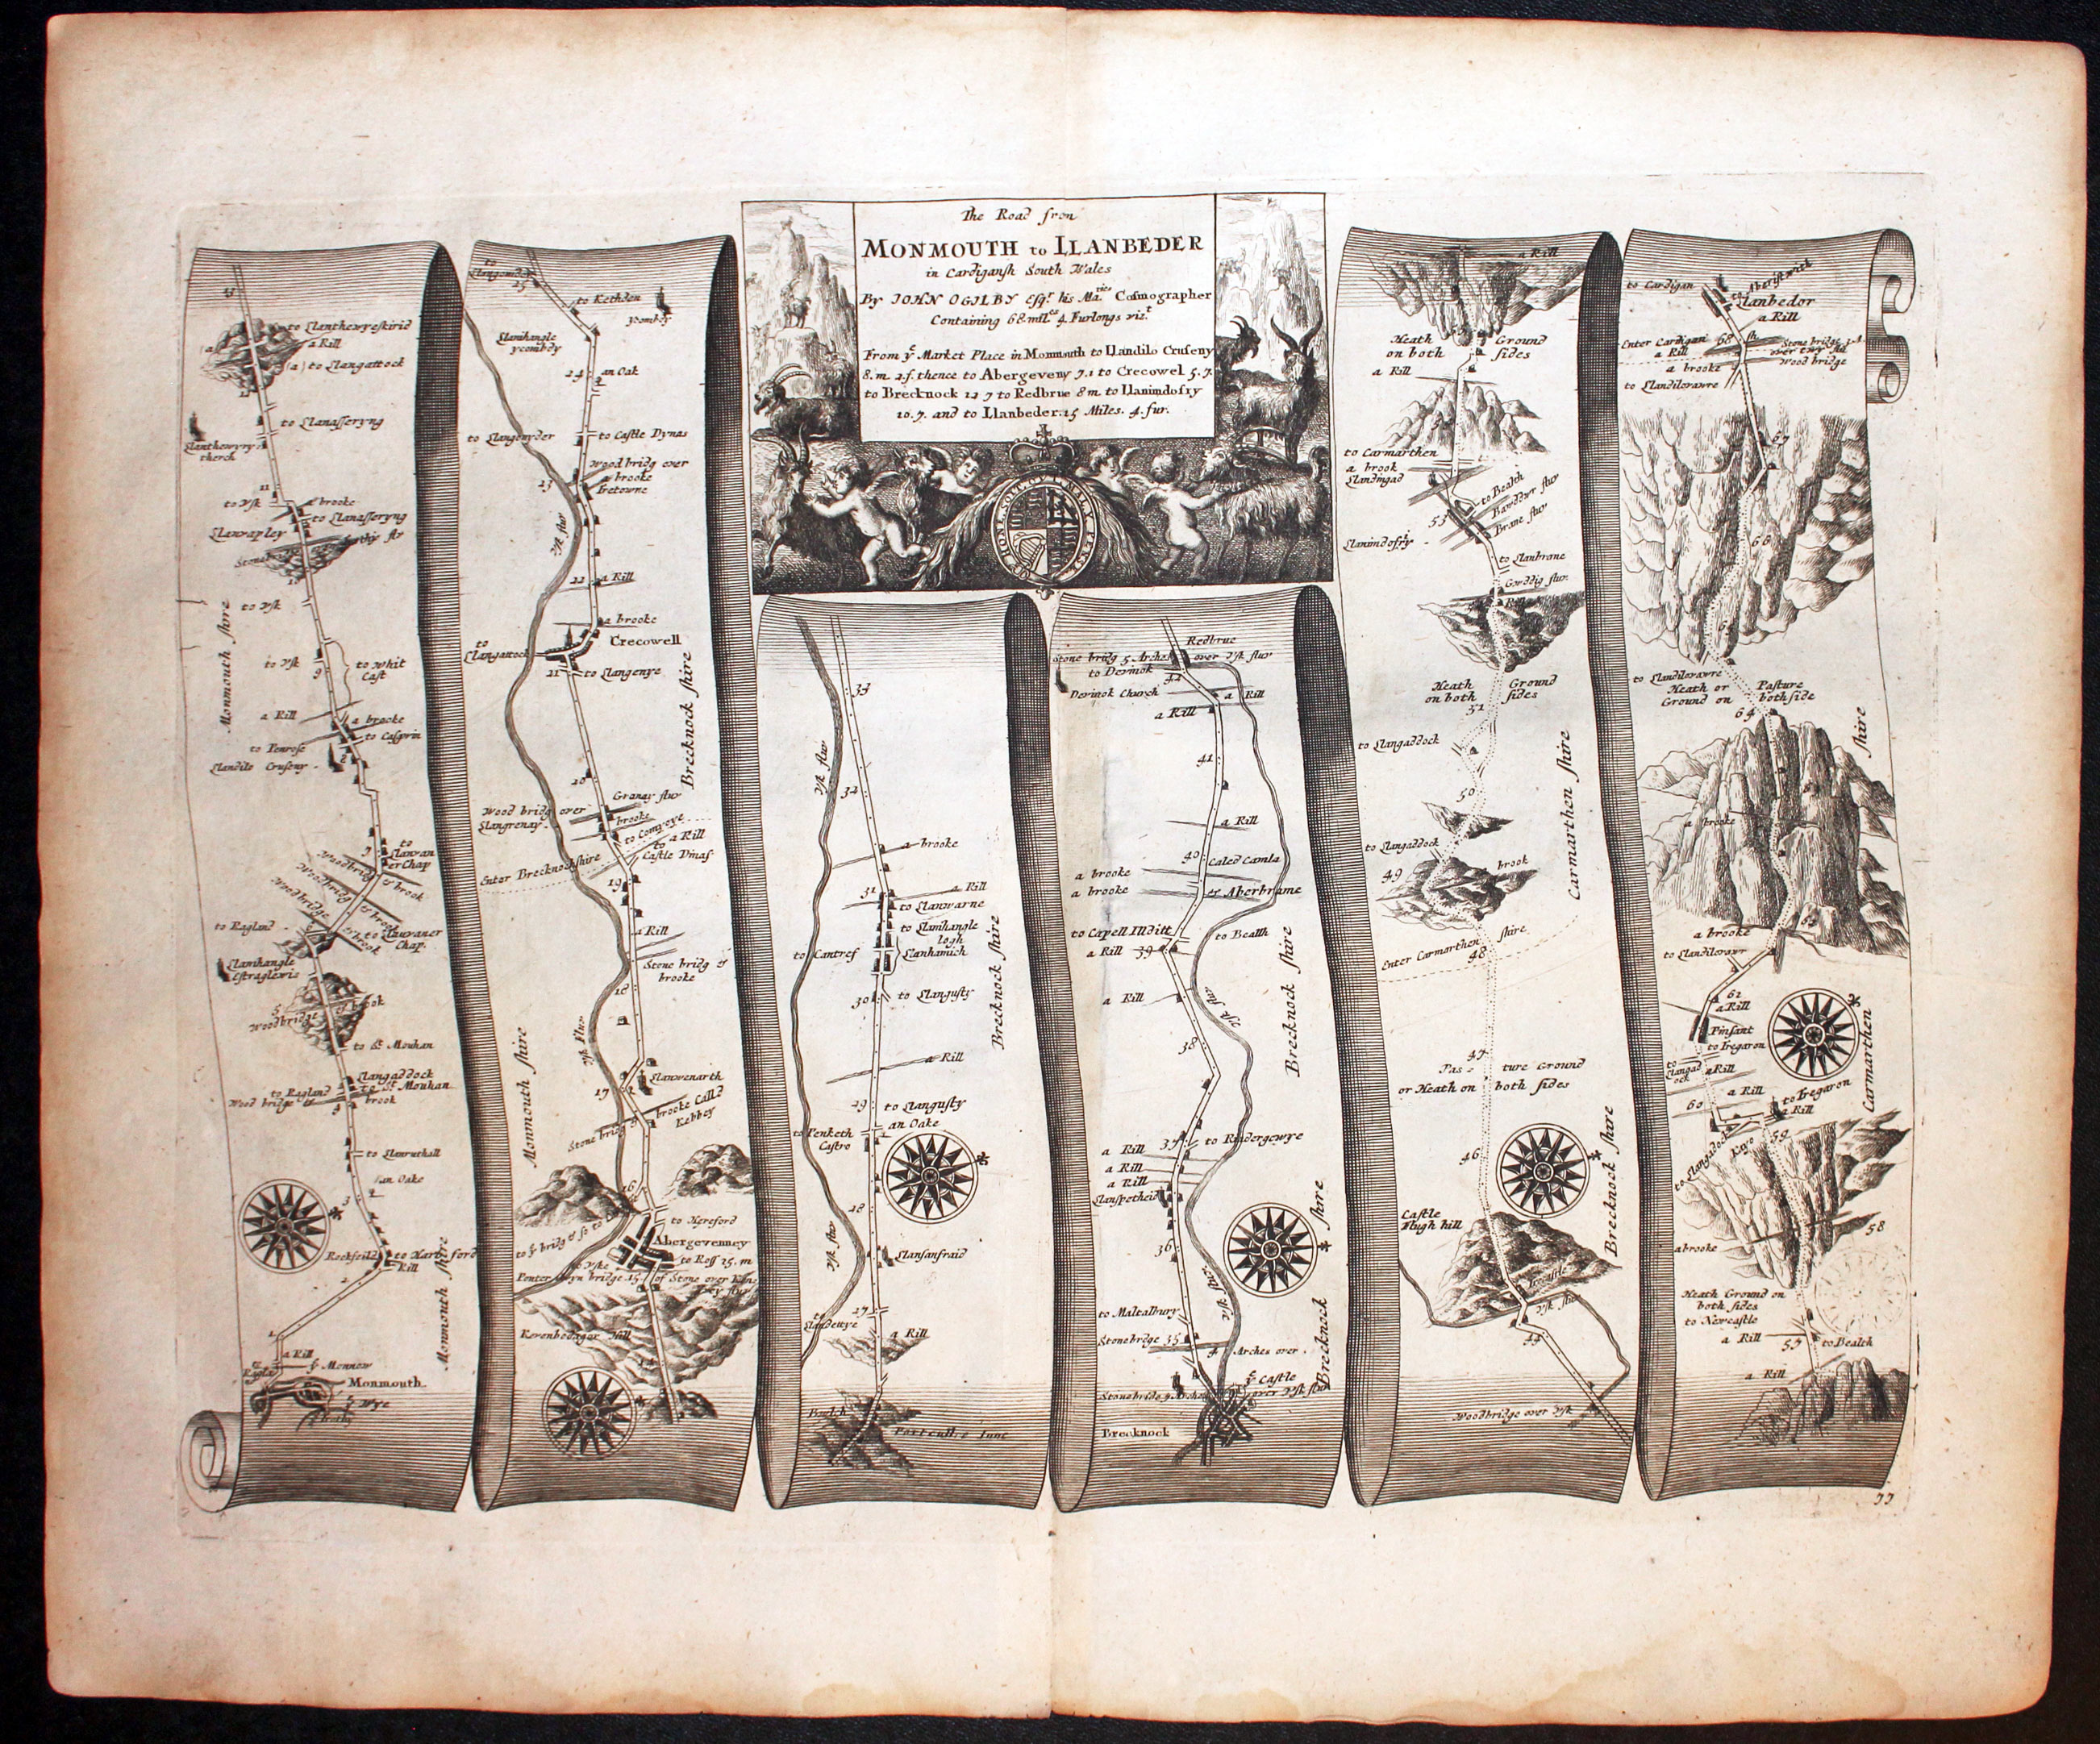 The Road from
MONMOUTH to LLANBEDER
in Cardigansh South Wales
By IOHN OGILBY Esqr. his Maties Cosmographer
Containing 68 miles 4 Furlongs vizt
From ye Market Place in Monmouth to Llandilo Cruseny
8.m 2.f. thence to Abergeveny 7.1 to Crecowel 5.7.
to Brecknock 12 7 to Redbrue 8 m. to Llanimdofry
10.7. and to Llanbeder. 15 Miles. 4. fur.
HONI SOIT QUI MAL Y PENSE
13
to Llanthewyeskirid
a Rill
to Llangattock
12
to Llanasseryng
11
to Vsk
a brooke
to Llanasseryng
Llanvapley
Stone
10
to Vsk
Monmouth shire
to Vsk
9
to Whit
Cast
a Rill
a brooke
to Penrose
Llandilo Cruseny
7
to
Chap
Woodbridg & brook
Woodbridge & brook
to Ragland
Chap.
Llanihangle
Woodbridge
to St. Mouhan
Llangaddock
to Ragland
to St Mouhan
Wood bridge &
brook
4
to Llanruthall
an Oake
3
Rockfeild
Rill
2
Monmouth shire
1
a Rill
ye Monnow
Monmouth
ye Wye
to
25
to Kethden
Llanihangle
24
an Oak
to Llangonyder
to Castle Dynas
Wood bridg over
a brooke
Tretowne
23
Vsk fluv
22
a Rill
a brooke
to
Llangattock
Crecowell
21
to Llangenye
Brecknock shire
20
Granay fluv
Wood bridg over
Llangrenay
brooke
to Comyoye
a Rill
to
Castle Dinas
Enter Brecknockshire
19
a Rill
Stone bridg &
brooke
18
Vsk Fluv
Monmouth shire
Llanwenarth
17
brooke Calld
Kebbey
Stone bridg &
16
to Hereford
Abergevenney
to Ross 15. m
to Vske
15
of Stone over
Hill
14
33
Vsk fluv
32
a brooke
31
a Rill
to Llanwarne
to Llanihangle
to Cantref
Llanhamich
30
to Llangusty
Brecknock shire
a Rill
29
to Llangusty
an Oake
to Penketh
Castro
28
Vsk fluv
Llansanfraid
27
to
a Rill
Portcullis Inne
Redbrue
Stone bridg 5 Arches over Vsk fluv
to Devinok
42
Devinok Church
a Rill
a Rill
41
a Rill
40
Caled Camla
a brooke
a brooke
& Aberbrame
to Capell Illditt
to Bealth
a Rill
39
Brecknock shire
a Rill
Vsk fluv
38
37
a Rill
a Rill
a Rill
36
Vsk fluv
to Maltalbury
Stonebridge
35
4 Arches over
ye Castle
Stonebridg 7 Arches
over Vsk fluv
Brecknock
Brecknock shire
a Rill
Heath
on both
Ground
sides
a Rill
to Carmarthen
a brook
Llandingad
to Bealth
Brane fluv
53
Llanimdofry
to Llanbrane
Gorddig fluv.
Heath
on both
Ground
sides
51
to Llangaddock
50
Carmarthen shire
to Llangaddock
49
brook
Enter Carmarthen shire
48
47
Pas-
ture Ground
or Heath on
both sides
46
Castle
Hugh hill
Brecknock shire
Trecastle
Vsk fluv
44
Woodbridge over Vsk
to Aberistwith
to Cardigan
Llanbedor
a Rill
Enter Cardigan sh
68
a Rill
a brooke
Wood bridge
to Llandilovawre
67
66
65
to Llandilovawre
Heath or
Ground on
Pasture
both side
64
shire
a brooke
63
a brooke
to Llandilovawr
61
a Rill
Pinsant
to Tregaron
a Rill
60
a Rill
to Tregaron
a Rill
Carmarthen
59
58
a brooke
Heath Ground on
both sides
to Newcastle
a Rill
55
to Bealth
a Rill